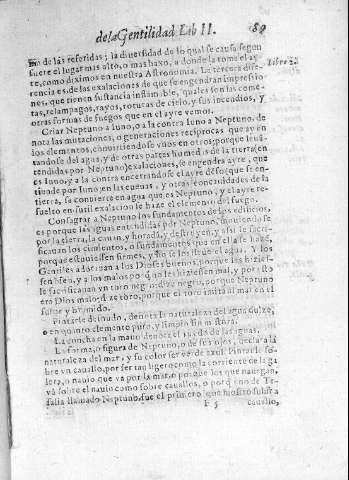 de la Gentilidad Lib II. 89
de las referidas; la diversidad de lo qual se causa segun
fuere el lugar mas alto, o mas baxo, a donde la tome el ay
re, como diximos en nuestra Astronomia. La tercera dife-
Libro 2.
rencia es de las exalaciones de que se engendran impressio
nes, que tienen sustancia inflamable, quales son las come-
tas, relampagos, rayos, roturas de cielo, y sus incendios, y
otras formas de fuegos que en el ayre vemos.
Criar Neptuno a Iuno, o a la contra Iuno a Neptuno, de
nota las mutaciones, o generaciones reciprocas que ay en
los elementos, convirtiendose vnos en otros; porque leuã-
tandose del agua, y de otras partes humedas de la tierra (en
tendidas por Neptuno) exalaciones, se engendra ayre, que
es Iuno; y a la contra encerrandose el ayre deso (que se en-
tiende por Iuno) en las cueuas, y otras concauidades de la
tierra, se conuierte en agua que es Neptuno, y el ayre re-
suelto en sutil exalacion le haze el elemento del fuego.
Consagrar a Neptuno los fundamentos de los edificios,
es porque las aguas entendidas por Neptuno, mouiendose
por la tierra, la cauan, y horada, y destruyen, y assi le sacri-
ficauan los cimientos, o fundamentos que en ella se hazē,
porque estuuiessen firmes, y no se los lleuasse el agua. Y los
Gentiles adorauan a los Dioses buenos, porque les hizies-
sen bien, y a los malos porque no les hiziessen mal, y por esto
le sacrificauan vn toro negro: dize negro, porque Neptuno
era Dios malo: dize toro, porque el toro imita al mar en el
furor y bramido.
Pintarle desnudo, denota la naturaleza del agua dulze,
o en quanto elemento puro, y simple sin mistura.
La concha en la mano denota el sonido de las aguas.
La forma, o figura de Neptuno, o de sus ojos, declara la
naturaleza del mar, y su color ser verde azul. Pintarle so-
bre vn cauallo, por ser tan ligero como la corriente de la ga
lera, o nauio que va por la mar, o porque los que nauegan,
va sobre el nauio como sobre cauallos, o porque vno de Te-
salia llamado Neptuno, fue el primero que mostro subir a
F 5 cauallo,